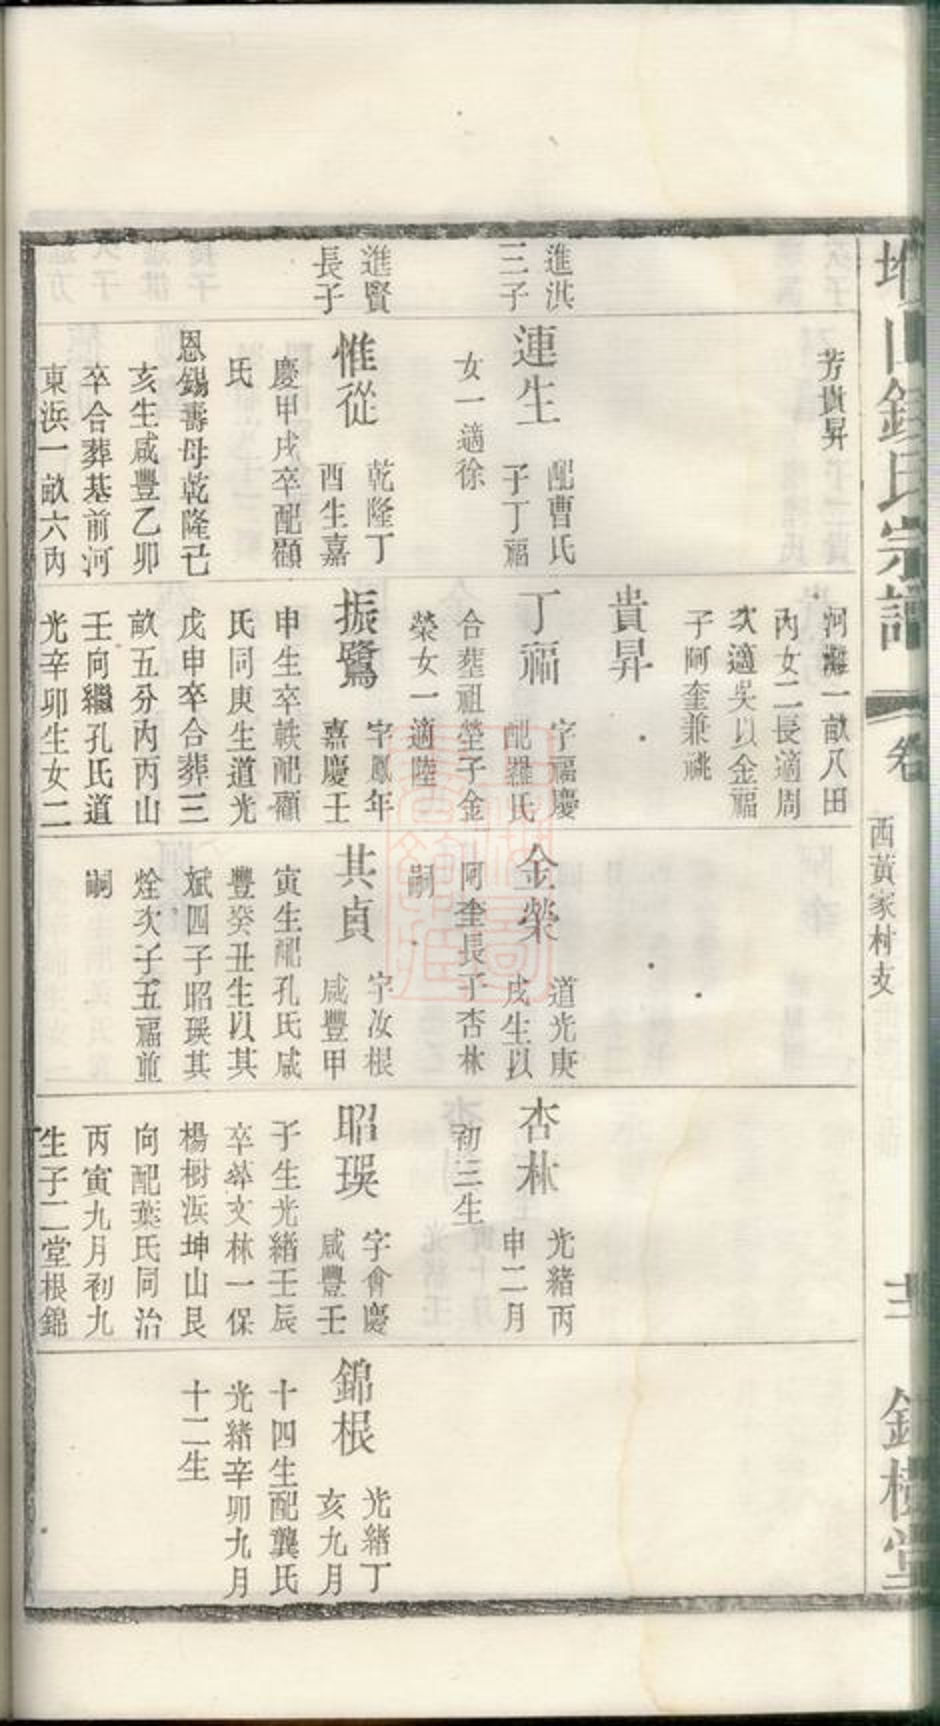 芳貴昇
河灘一畝八田
內女二長適周
次適吳以金福
子阿奎兼祧
貴昇
進洪
三子
連生
配曹氏
子丁福
女一適徐
丁福
字福慶
配羅氏
合葬祖塋子金
榮女一適陸
金榮
道光庚
戌生以
阿奎長子杏林
嗣
杏林
光緒丙
申二月
初三生
進賢
長子
惟從
乾隆丁
酉生嘉
慶甲戌卒配顧
氏
恩錫壽母乾隆己
亥生咸豐乙卯
卒合葬基前河
東浜一畝六內
振鷺
字鳳年
嘉慶壬
申生卒軼配顧
氏同庚生道光
戊申卒合葬三
畝五分內丙山
壬向繼孔氏道
光辛卯生女二
其貞
字汝根
咸豐甲
寅生配孔氏咸
豐癸丑生以其
斌四子昭瑛其
烇次子五福並
嗣
昭瑛
字會慶
咸豐壬
子生光緒壬辰
卒葬文林一保
楊樹浜坤山艮
向配葉氏同治
丙寅九月初九
生子二堂根錦
錦根
光緒丁
亥九月
十四生配龔氏
光緒辛卯九月
十二生
山錢氏宗譜
卷
西黃家村支
錢樓堂